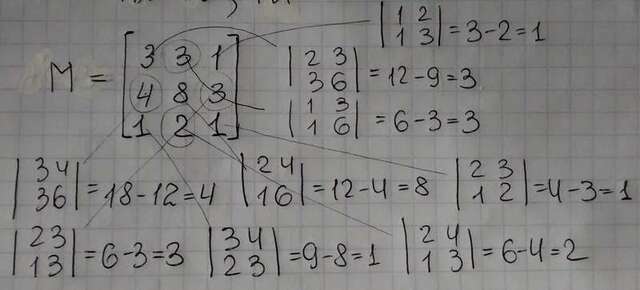 M = [3 3 1
4 8 3
1 2 1]
|1 2
1 3| = 3-2=1
|2 3
3 6| = 12-9=3
|1 3
1 6| = 6-3=3
|3 4
3 6| = 18-12=4
|2 4
1 6| = 12-4=8
|2 3
1 2| = 4-3=1
|2 3
1 3| = 6-3=3
|3 4
2 3| = 9-8=1
|2 4
1 3| = 6-4=2